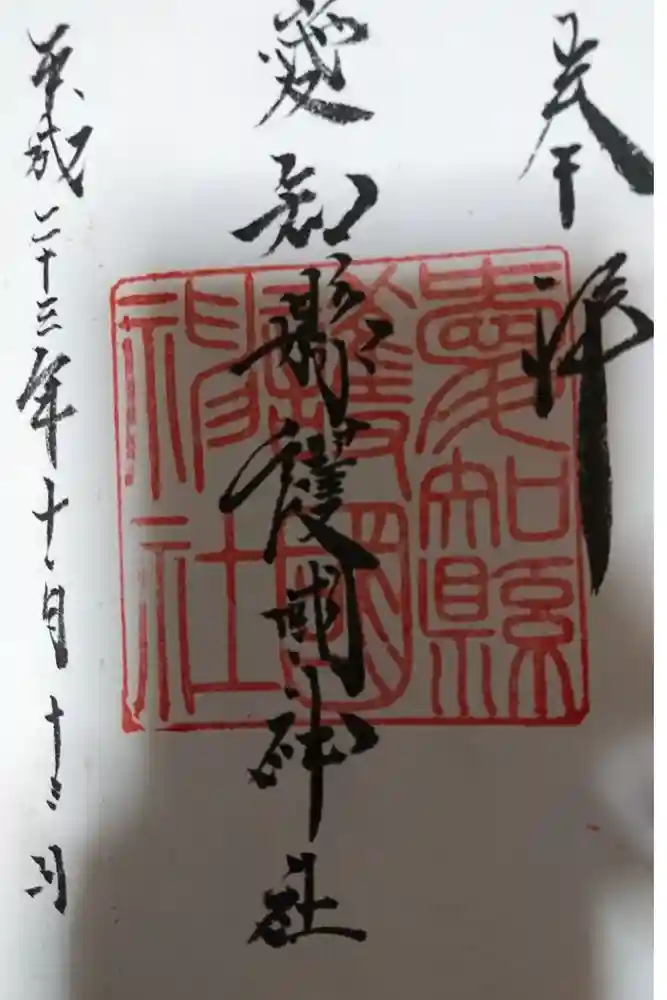 奉拝
愛知縣護國神社
愛知縣
護國
神社
平成二十三年十一月十二日